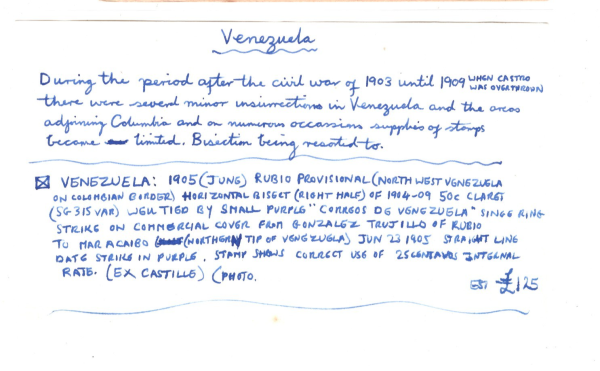 Venezuela
During the period after the civil war of 1903 until 1909 WHEN CASTRO WAS OVERTHROWN
there were several minor insurrections in Venezuela and the areas
adjoining Columbia and on numerous occassions supplies of stamps
became limited. Bisection being resorted to.
☒ VENEZUELA: 1905 (JUNE) RUBIO PROVISIONAL (NORTH WEST VENEZUELA
ON COLOMBIAN BORDER) HORIZONTAL BISECT (RIGHT HALF) OF 1904-09 50C CLARET
(SG 315 VAR) WELL TIED BY SMALL PURPLE "CORREOS DE VENEZUELA" SINGE RING
STRIKE ON COMMERCIAL COVER FROM GONZALEZ TRUJILLO OF RUBIO
TO MARACAIBO (NORTHERN TIP OF VENEZUELA) JUN 23 1905 STRAIGHT LINE
DATE STRIKE IN PURPLE. STAMP SHOWS CORRECT USE OF 25 CENTAVOS INTERNAL
RATE. (EX CASTILLE) (PHOTO.
EST £125